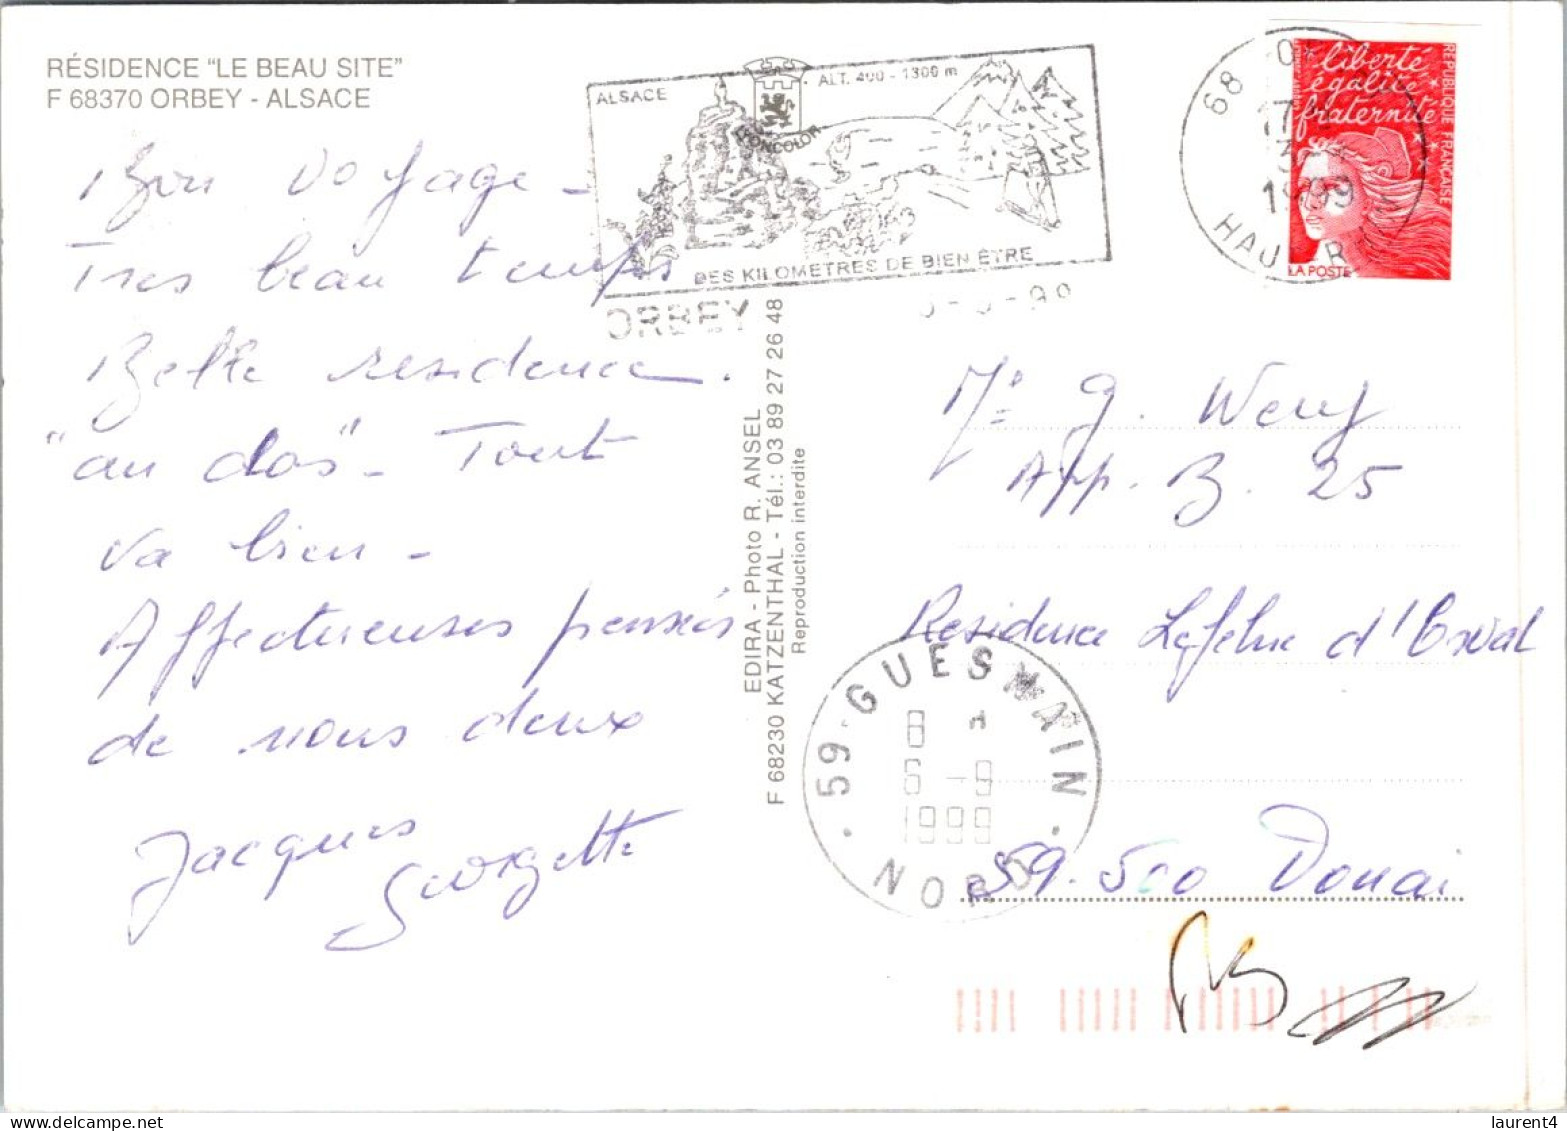 RÉSIDENCE "LE BEAU SITE"
F 68370 ORBEY - ALSACE
Bon voyage -
Tres beau temps
Belle residence.
"au dos" - Tout
va bien -
Affectueuses pensées
de nous deux
Jacques
Georgette
ALSACE
ALT. 400 - 1300 m
LYONCOLOR
DES KILOMETRES DE BIEN ÊTRE
ORBEY
EDIRA - Photo R. ANSEL
F 68230 KATZENTHAL - Tél.: 03 89 27 26 48
Reproduction interdite
68
1999
HAUT RHIN
liberté
égalité
fraternité
RÉPUBLIQUE FRANÇAISE
LA POSTE
App. B. 25
Residence Lefebvre d'Orval
59.500 Douai
59 GUESMAIN
8 H
6 -9
1999
NORD
laurent4